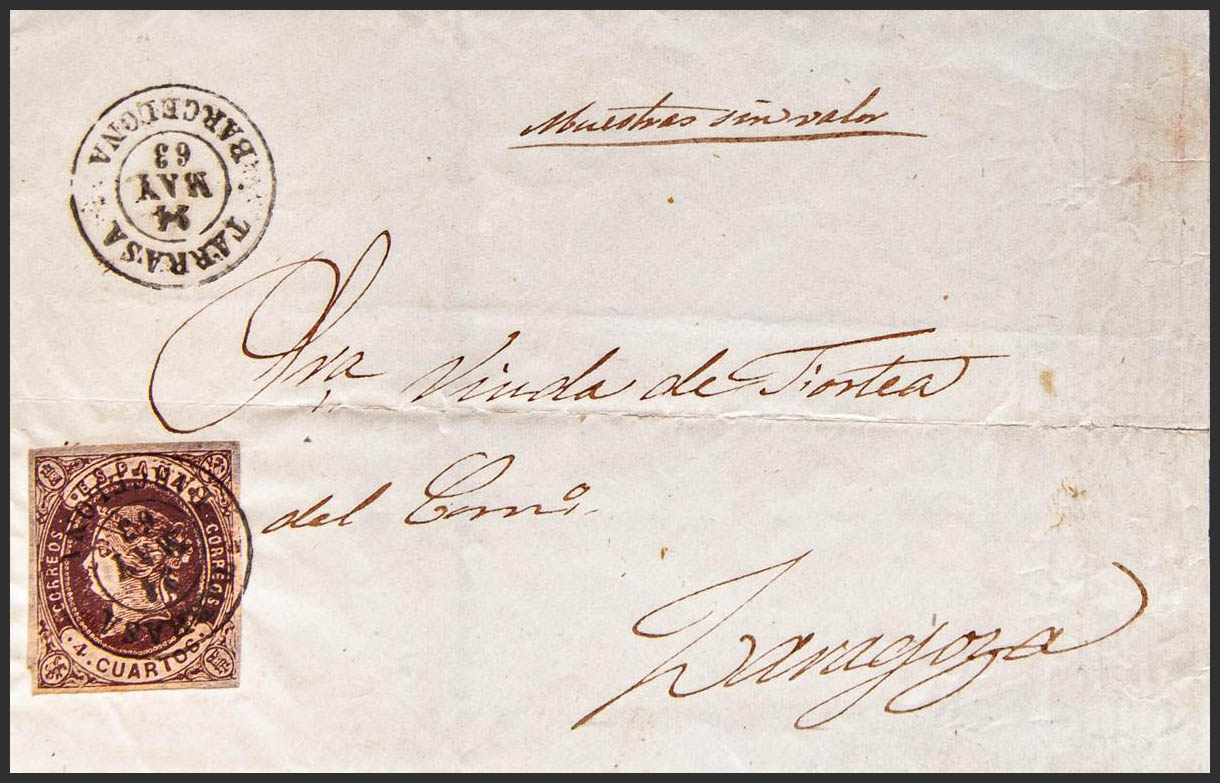 BARCELONA
TARRASA
24
MAY
63
Muestras sin valor
Sra Viuda de Fortea
del Comº.
Zaragoza
ESPAÑA
CORREOS
CORREOS
4. CUARTOS.